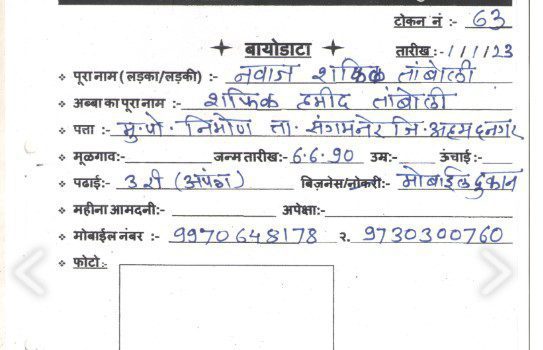 टोकन नं :- 63
बायोडाटा
तारीख :- 1/1/23
पूरा नाम (लड़का/लड़की) :- नवाज शफिक तांबोली
अब्बा का पूरा नाम :- शफिक हमीद तांबोली
पता :- मु.पो. निमोण ता. संगमनेर जि. अहमदनगर
मूळगाव:- जन्म तारीख :- 6.6.90 उम्र:- ऊंचाई :-
पढाई:- 3री (अपंग) बिज़नेस/नोकरी:- मोबाईल दुकान
महीना आमदनी:- अपेक्षा:-
मोबाईल नंबर :- 9970648178 २. 9730300760
फोटो:-